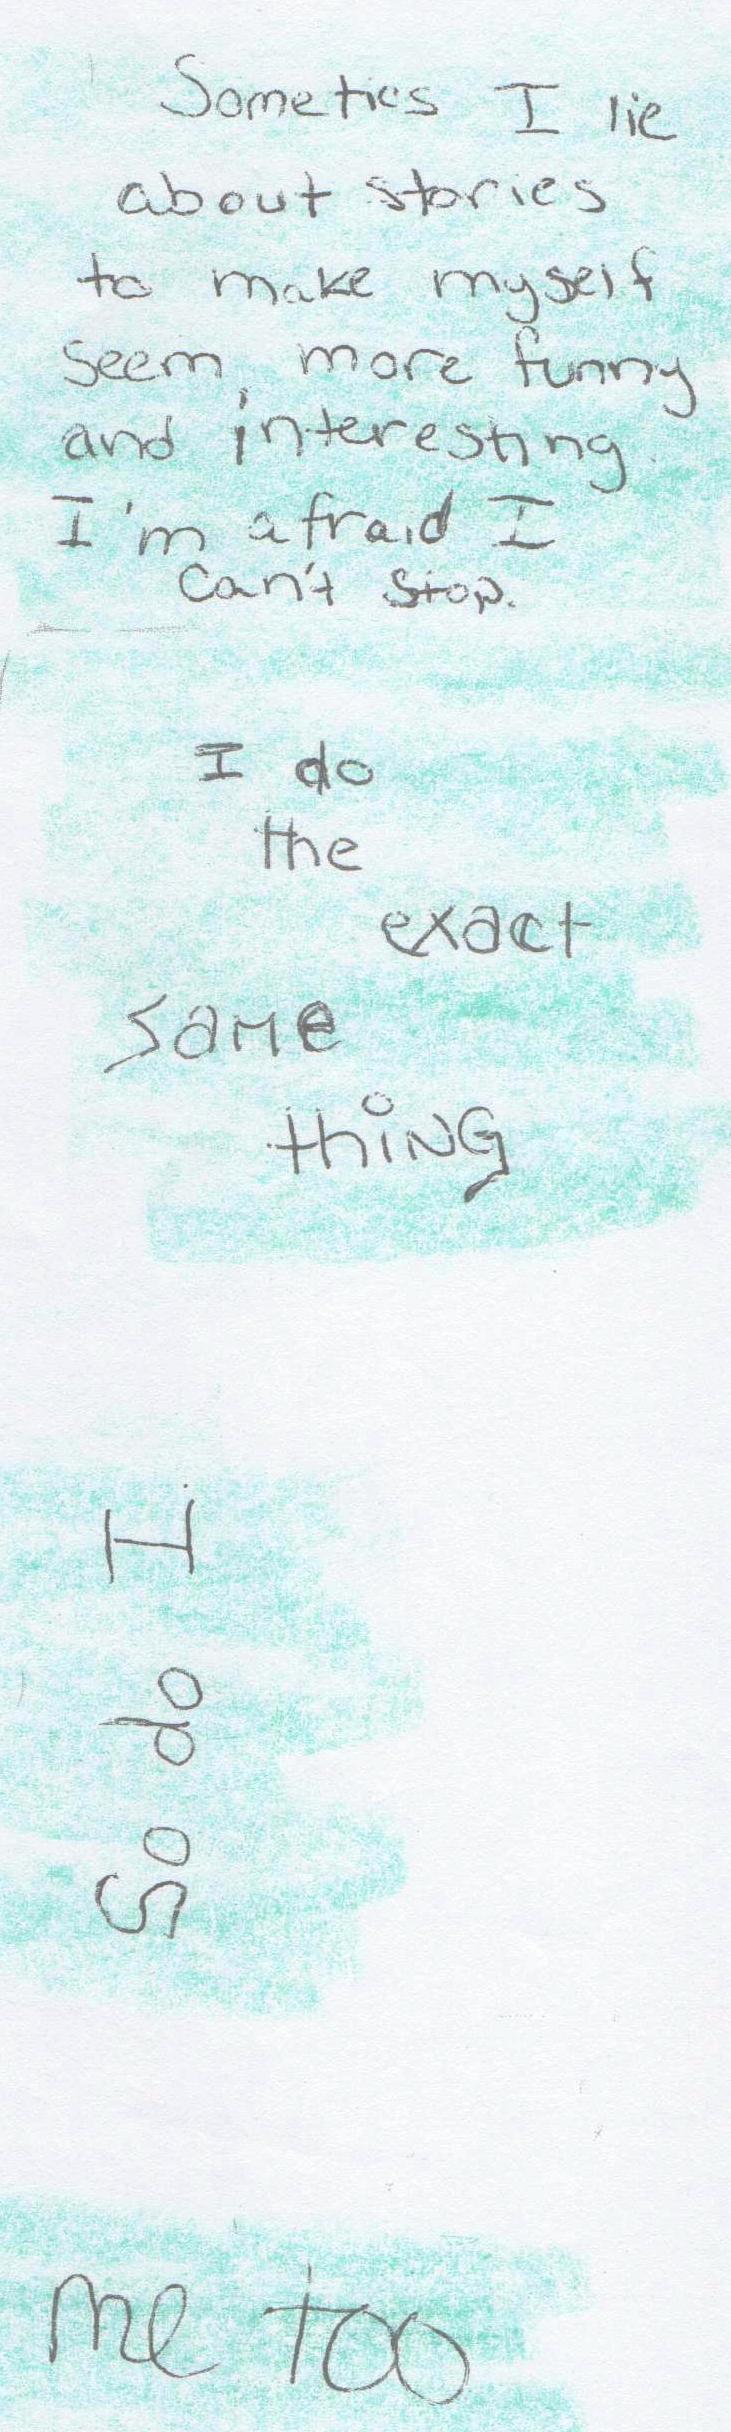 Sometics I lie
about stories
to make myself
seem more funny
and interesting.
I'm afraid I
can't stop.
I do
the
exact
same
thiNG
So do I
me too